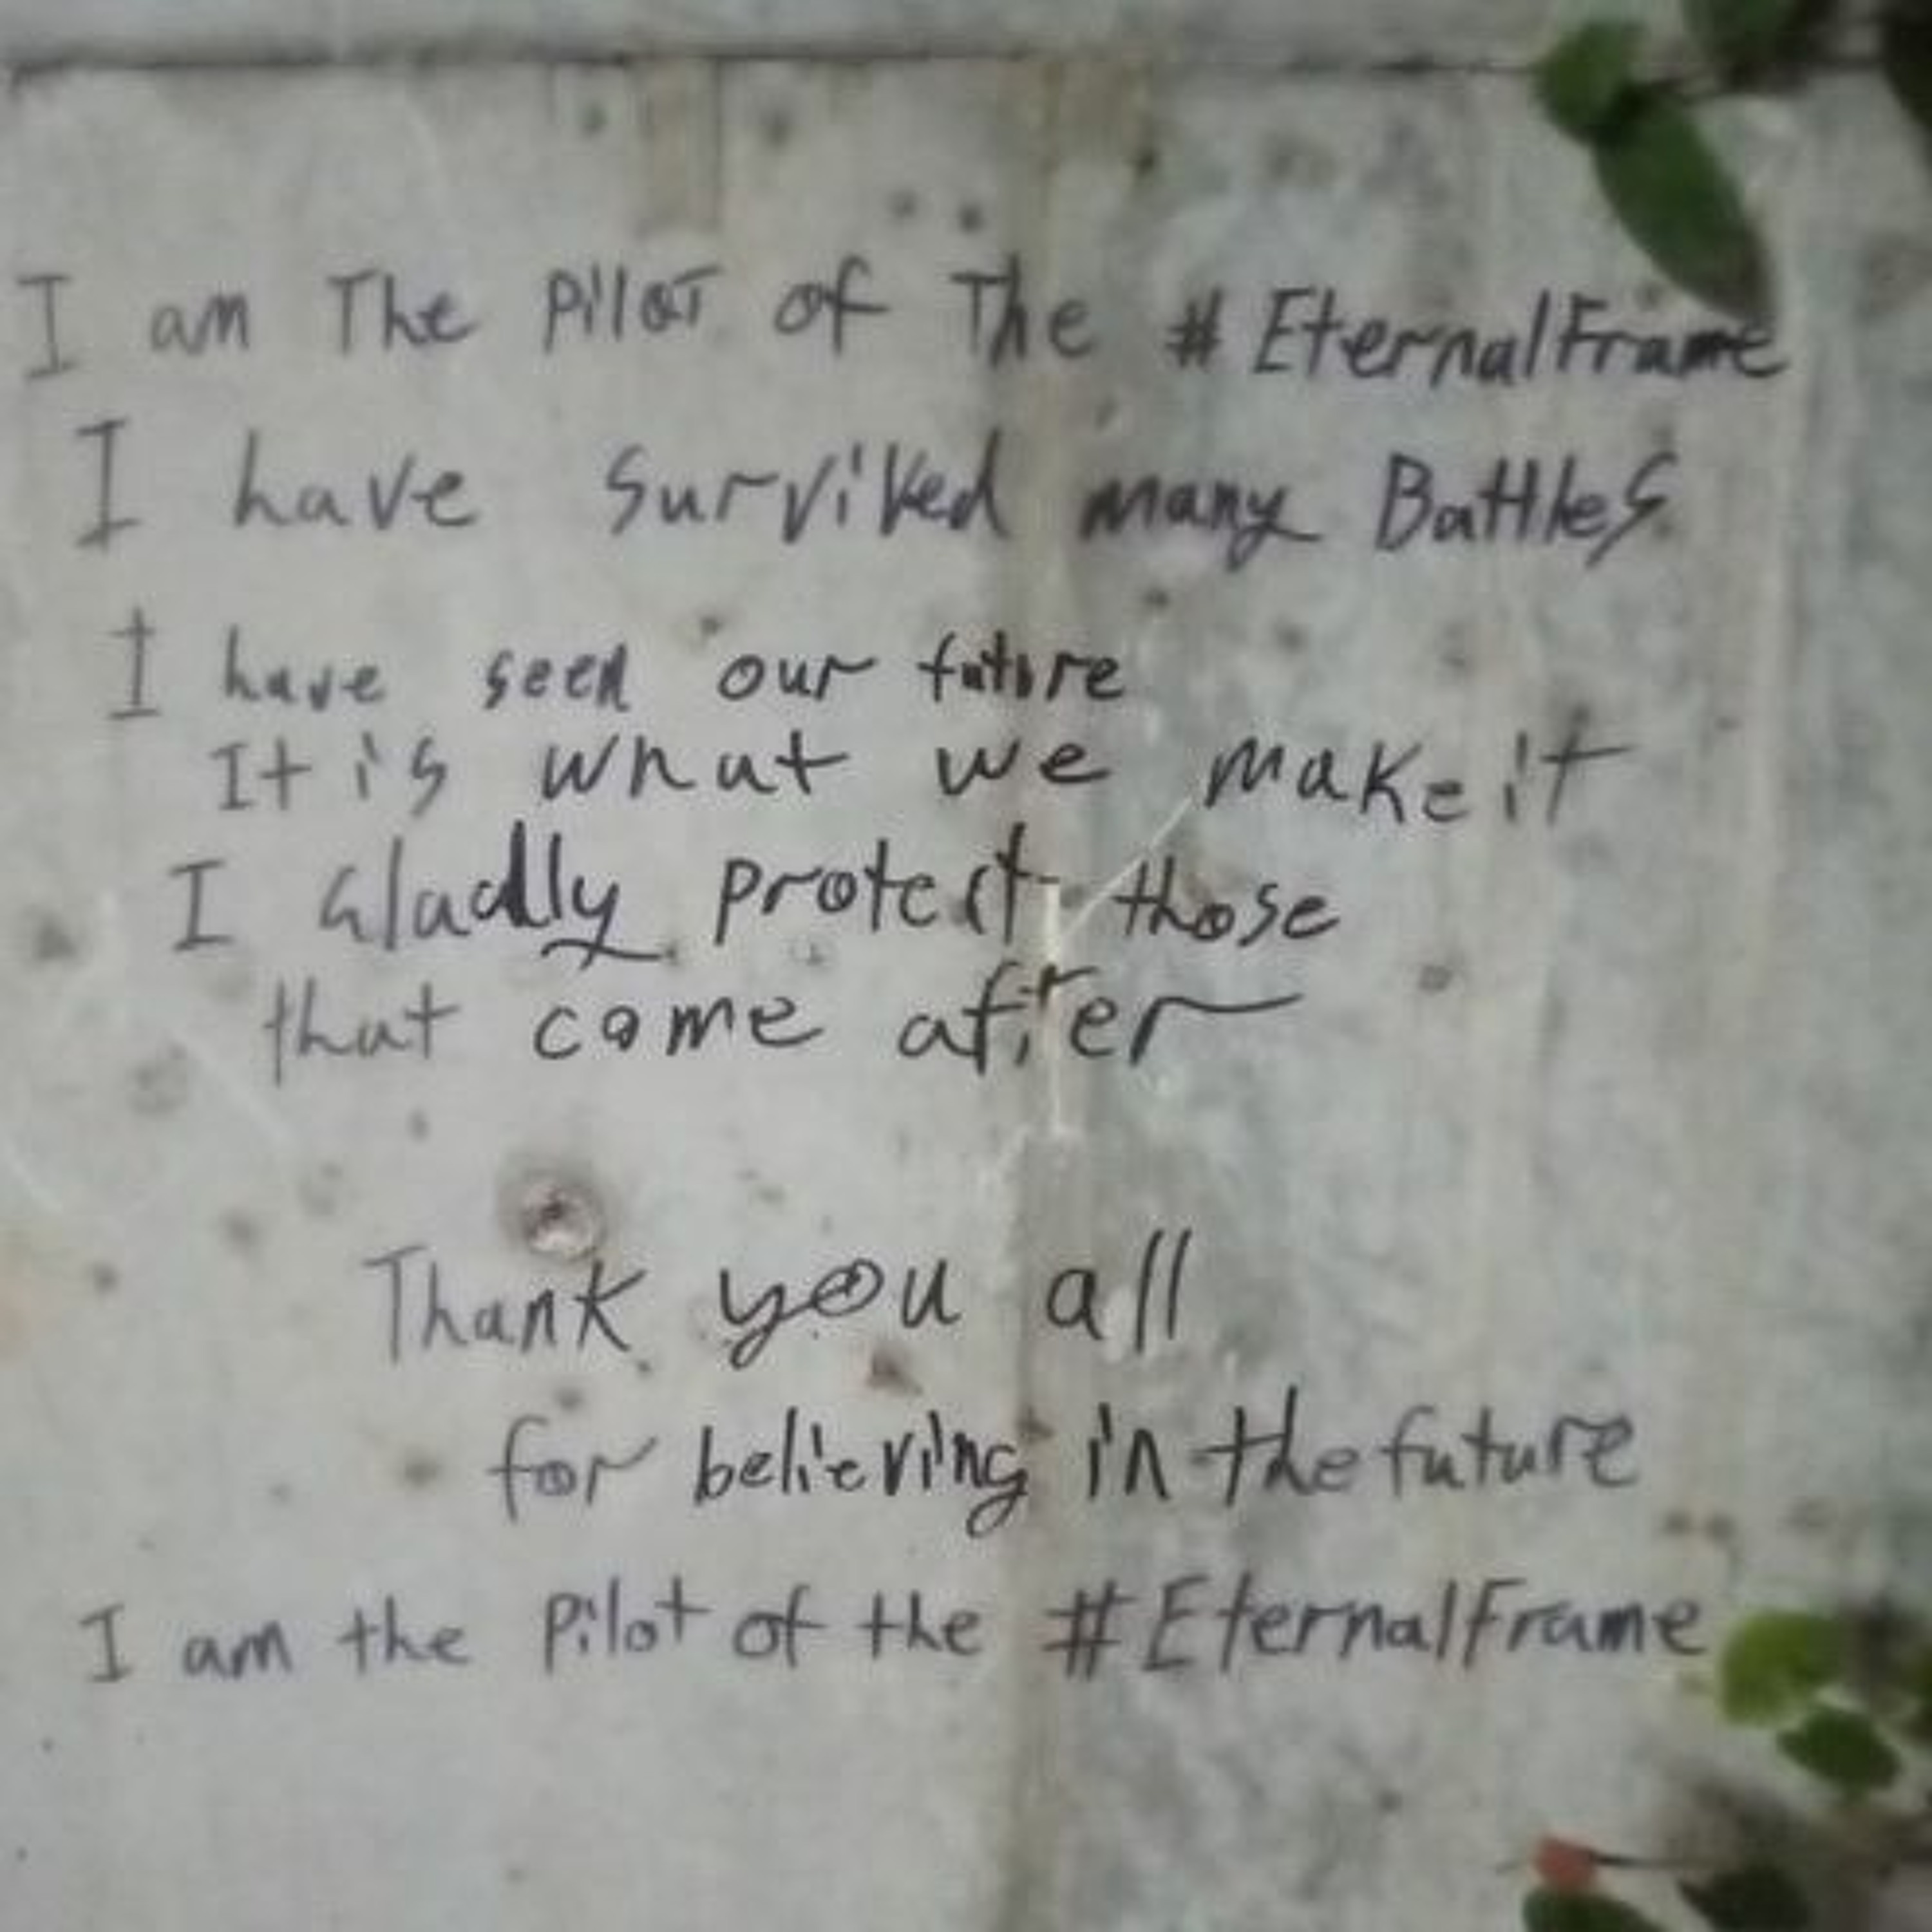 I am The Pilot of The #EternalFrame
I have Survived many Battles
I have seen our future
It is what we make it
I Gladly protect those
that come after
Thank you all
for believing in the future
I am the Pilot of the #EternalFrame